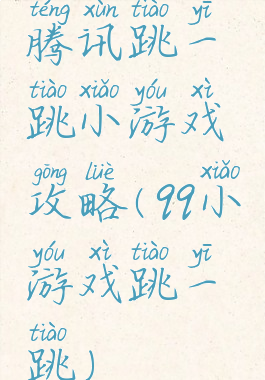 téng xùn tiào yī
腾讯跳一
tiào xiǎo yóu xì
跳小游戏
gōng lüè xiǎo
攻略(99小
yóu xì tiào yī
游戏跳一
tiào
跳)